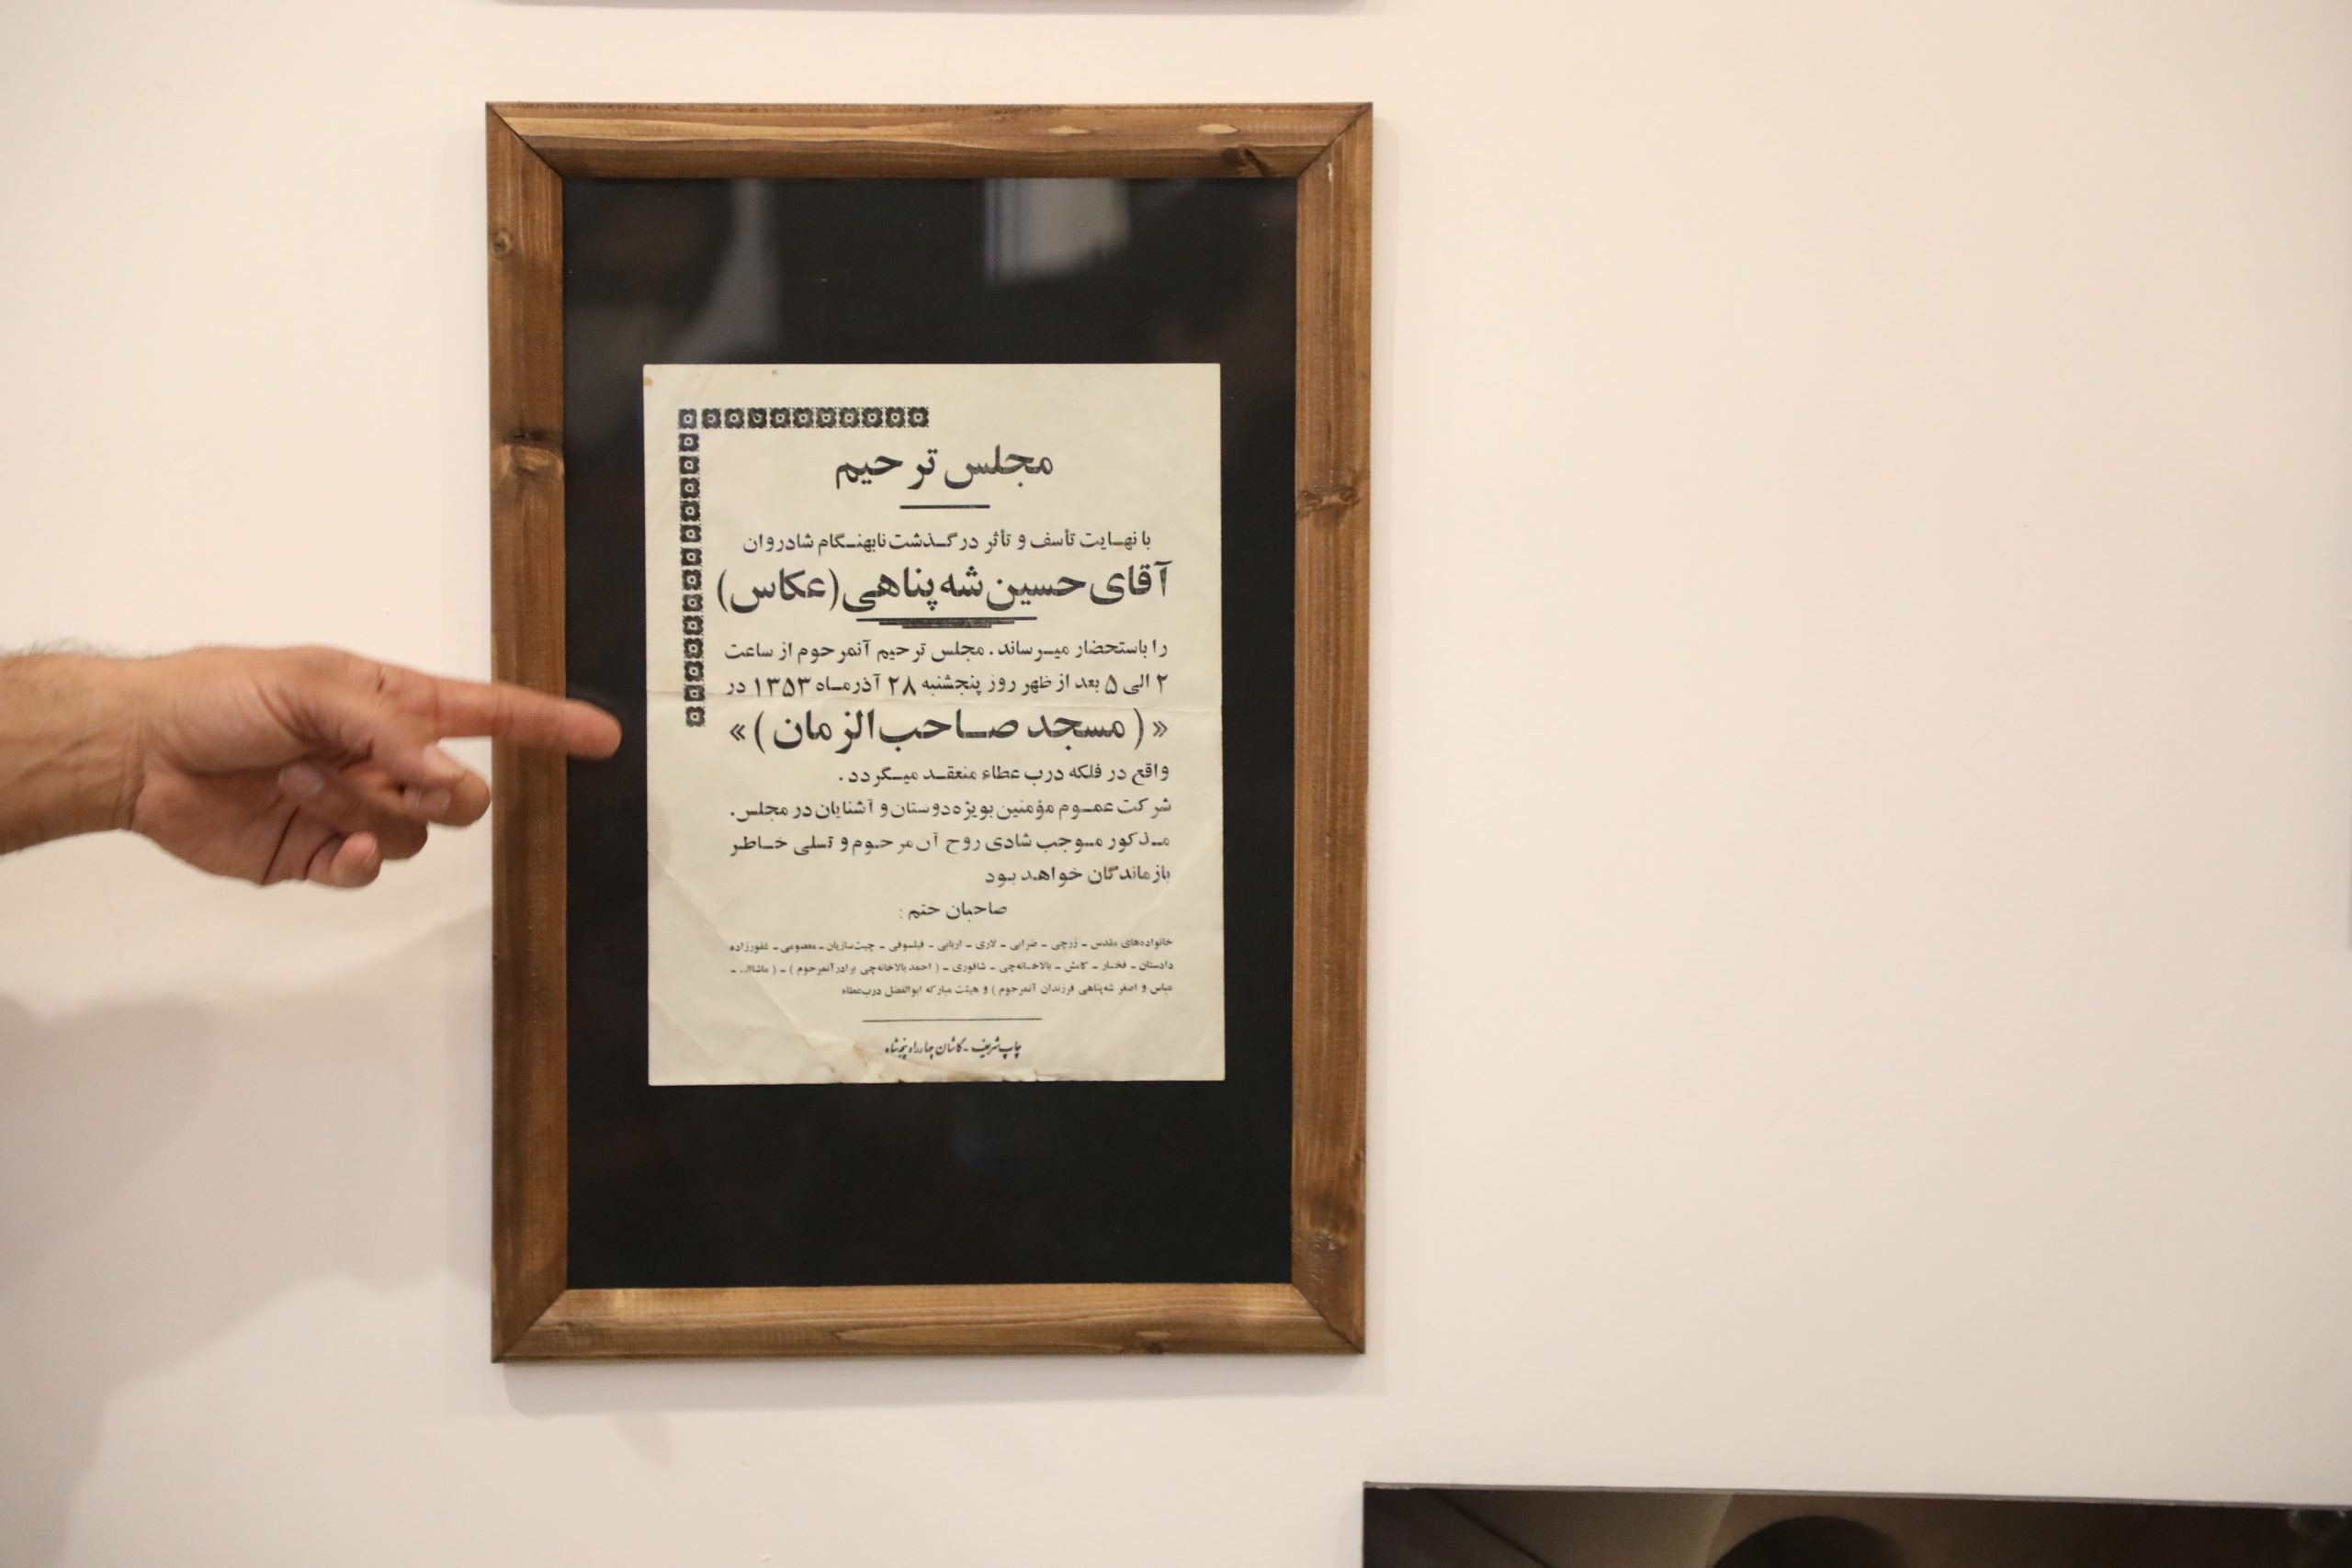 مجلس ترحیم
با نهایت تأسف و تأثر درگذشت نابهنگام شادروان
آقای حسین شه پناهی (عکاس)
را باستحضار میرساند. مجلس ترحیم آنمرحوم از ساعت
۲ الی ۵ بعد از ظهر روز پنجشنبه ۲۸ آذرماه ۱۳۵۳ در
«(مسجد صاحب الزمان)»
واقع در فلکه درب عطاء منعقد میگردد.
شرکت عموم مؤمنین بویژه دوستان و آشنایان در مجلس.
مذکور موجب شادی روح آن مرحوم و تسلی خاطر
بازماندگان خواهد بود
صاحبان ختم:
خانواده‌های مقدس - زرچی - ضرابی - لاری - اربابی - فیلسوفی - چیت‌سازیان - معصومی - غفورزاده
دادستان - فخار - کامش - بالاخانه‌چی - شاقوری - (احمد بالاخانه‌چی برادر آنمرحوم) - (ماشاالله -
عباس و اصغر شه‌پناهی فرزندان آنمرحوم) و هیئت مبارکه ابوالفضل درب‌عطاء
چاپ شریف - کاشان چهارراه پنجه‌شاه